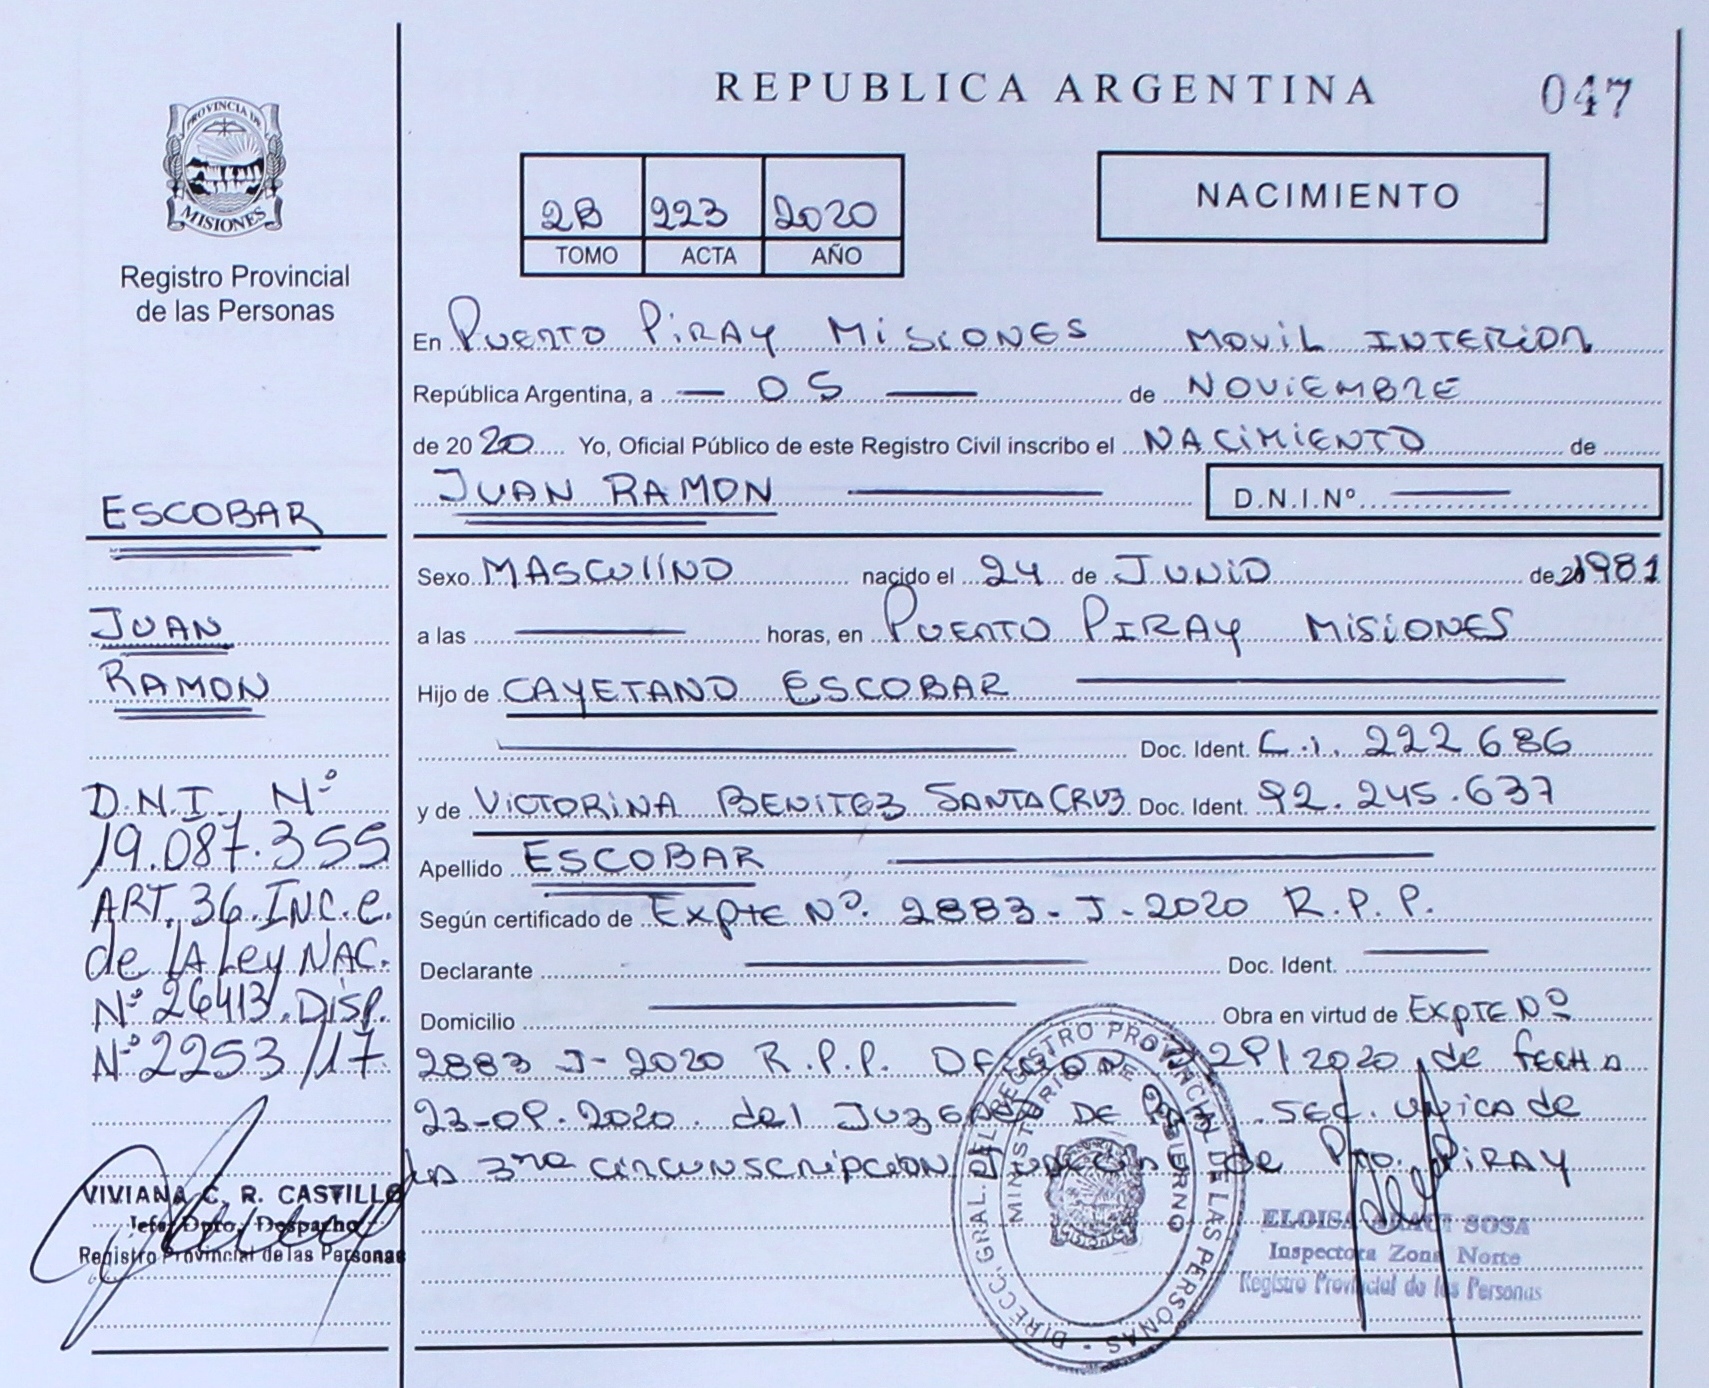 REPUBLICA ARGENTINA
047
PROVINCIA DE
MISIONES
Registro Provincial
de las Personas
2B 223 2020
TOMO ACTA AÑO
NACIMIENTO
En PUERTO PIRAY MISIONES MOVIL INTERIOR
República Argentina, a — 05 — de NOVIEMBRE
de 20 20 Yo, Oficial Público de este Registro Civil inscribo el NACIMIENTO de
JUAN RAMON
D.N.I.Nº
Sexo MASCULINO nacido el 24 de JUNIO de 1981
a las horas, en PUERTO PIRAY MISIONES
Hijo de CAYETANO ESCOBAR
Doc. Ident. C.I. 222686
y de VICTORINA BENITEZ SANTACRUZ Doc. Ident. 92.245.637
Apellido ESCOBAR
Según certificado de Expte Nº. 2883-J-2020 R.P.P.
Declarante Doc. Ident.
Domicilio Obra en virtud de EXPTE Nº
2883 J-2020 R.P.P. /2020 de FECHA
23-09-2020 del JUZGADO DE PAZ SEC. UNICA de
LA 3ra CIRCUNSCRIPCION de Pto. PIRAY
ESCOBAR
JUAN
RAMON
D.N.I. Nº
19.087.355
ART. 36.INC.e.
de LA Ley NAC.
Nº 26413.DISP.
Nº 2253/17
VIVIANA C. R. CASTILLO
Jefa Dpto. Despacho
Registro Provincial de las Personas
DIRECC. GRAL. DEL REGISTRO PROVINCIAL DE LAS PERSONAS
MINISTERIO DE GOBIERNO
ELOISA ARACI SOSA
Inspectora Zona Norte
Registro Provincial de las Personas